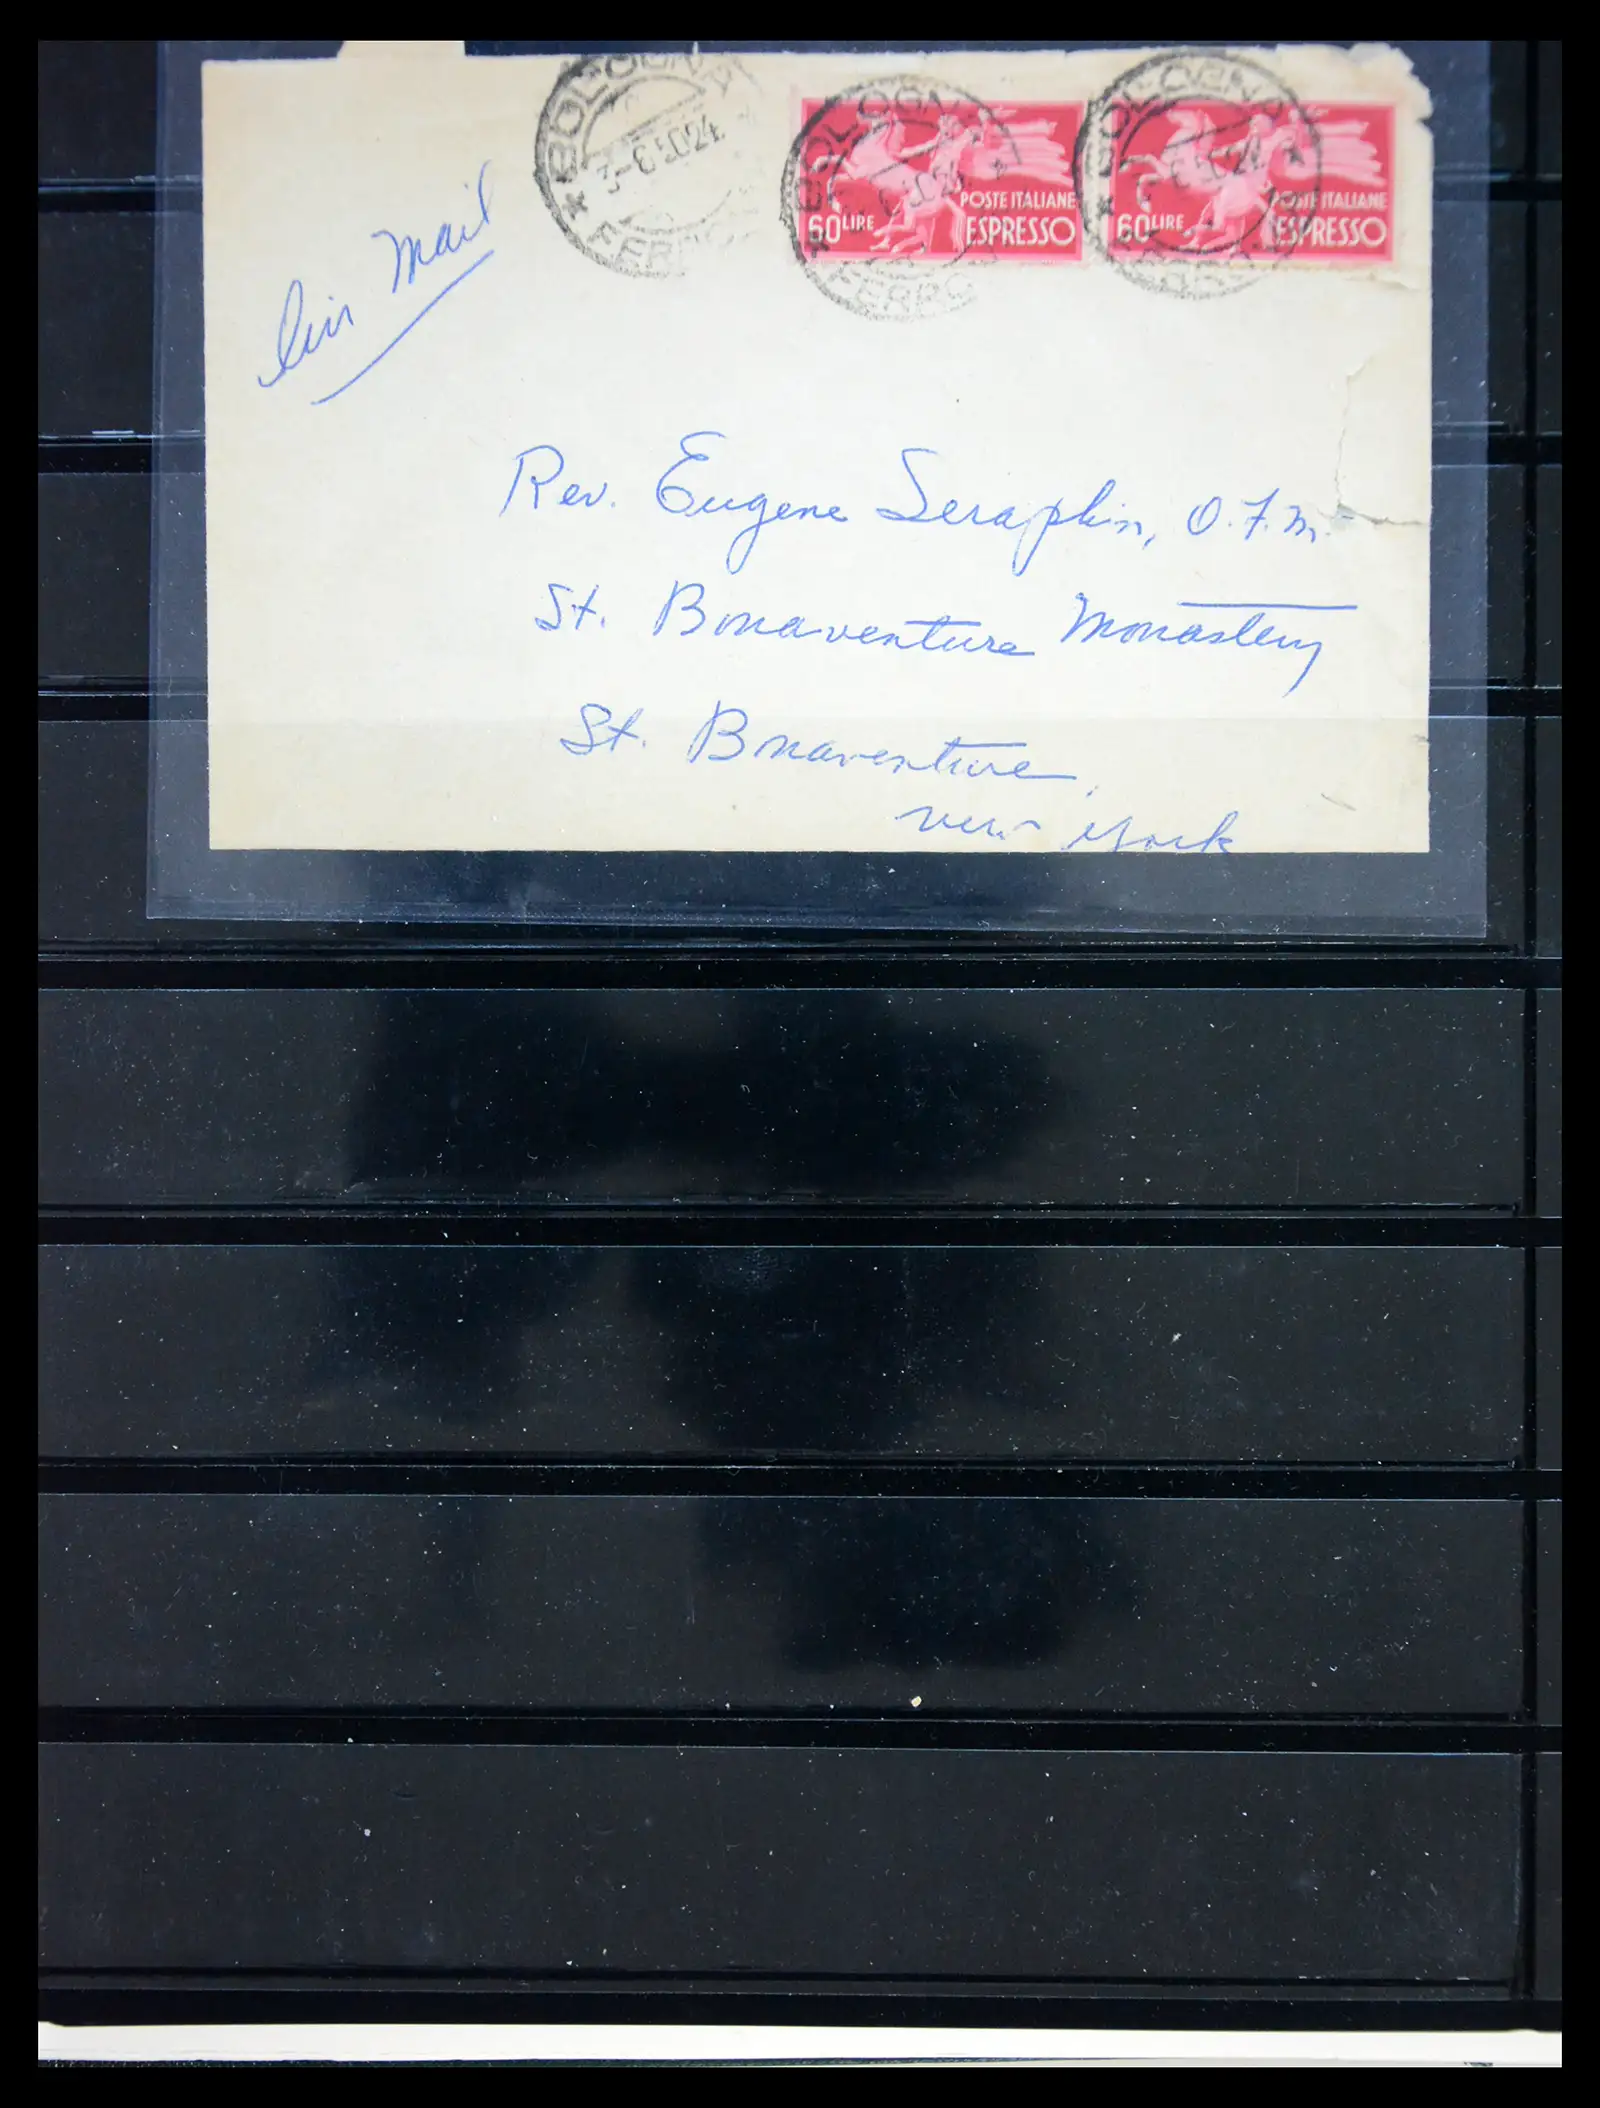 BOLOGNA
3-6 50 24
FERR
BOLOGN
FERRO
BOLOGNA
60 LIRE
POSTE ITALIANE
ESPRESSO
60 LIRE
POSTE ITALIANE
ESPRESSO
Air Mail
Rev. Eugene Seraphin, O.F.M.
St. Bonaventure Monastery
St. Bonaventure,
New York